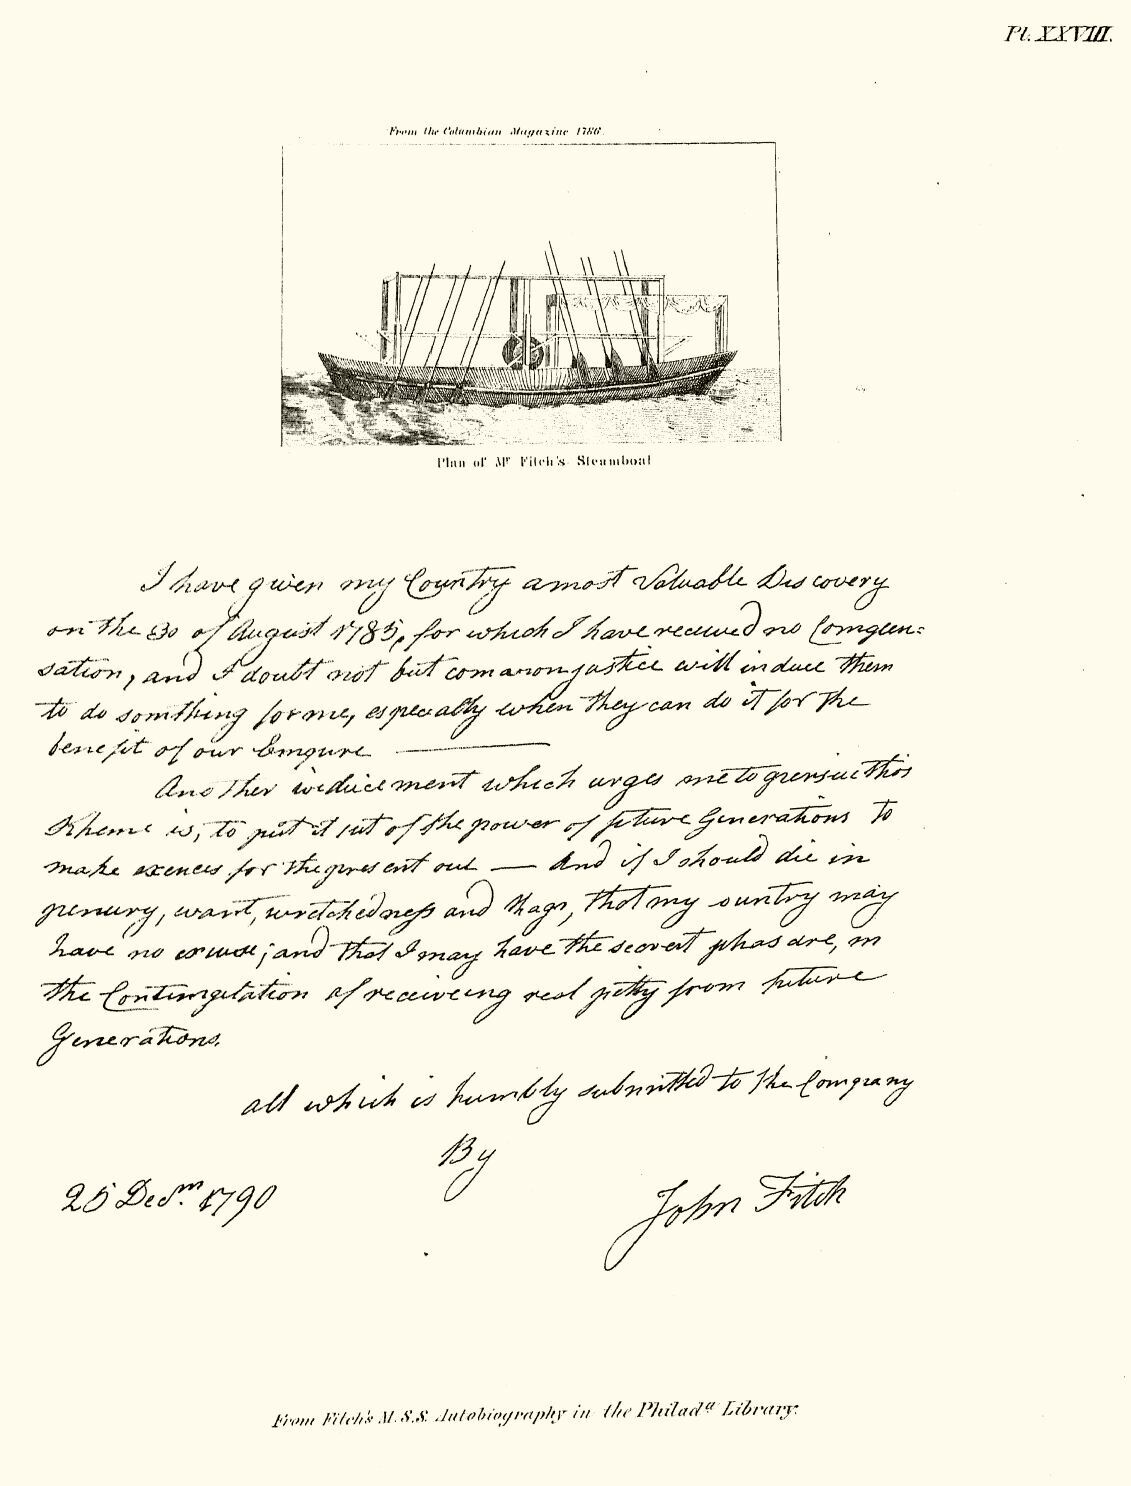 Pl. XXVIII.
From the Columbian Magazine 1786.
Plan of Mr Fitch's Steamboat
I have given my Country a most Valuable Discovery
on the 30 of August 1785, for which I have received no Compen=
sation, and I doubt not but common justice will induce them
to do somthing for me, especially when they can do it for the
benefit of our Empire
Another inducement which urges me to persue this
Scheme is, to put it out of the power of future Generations to
make excuces for the present one — And if I should die in
penury, want, wretchedness and Rags, that my Country may
have no excuse; and that I may have the secret pleasure, in
the Contimpelation of receiveing real pitty from future
Generations.
all which is humbly submitted to the Company
By
25 Decm. 1790
John Fitch
From Fitch's M.S.S. Autobiography in the Philada Library.